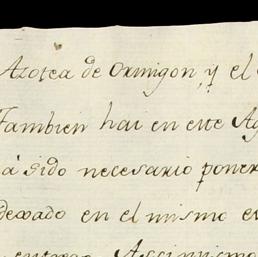 Azotea de ormigon, y el
Tambien hai en este Ag
á sido necesario poner
dexado en el mismo e
entrego Assi mismo